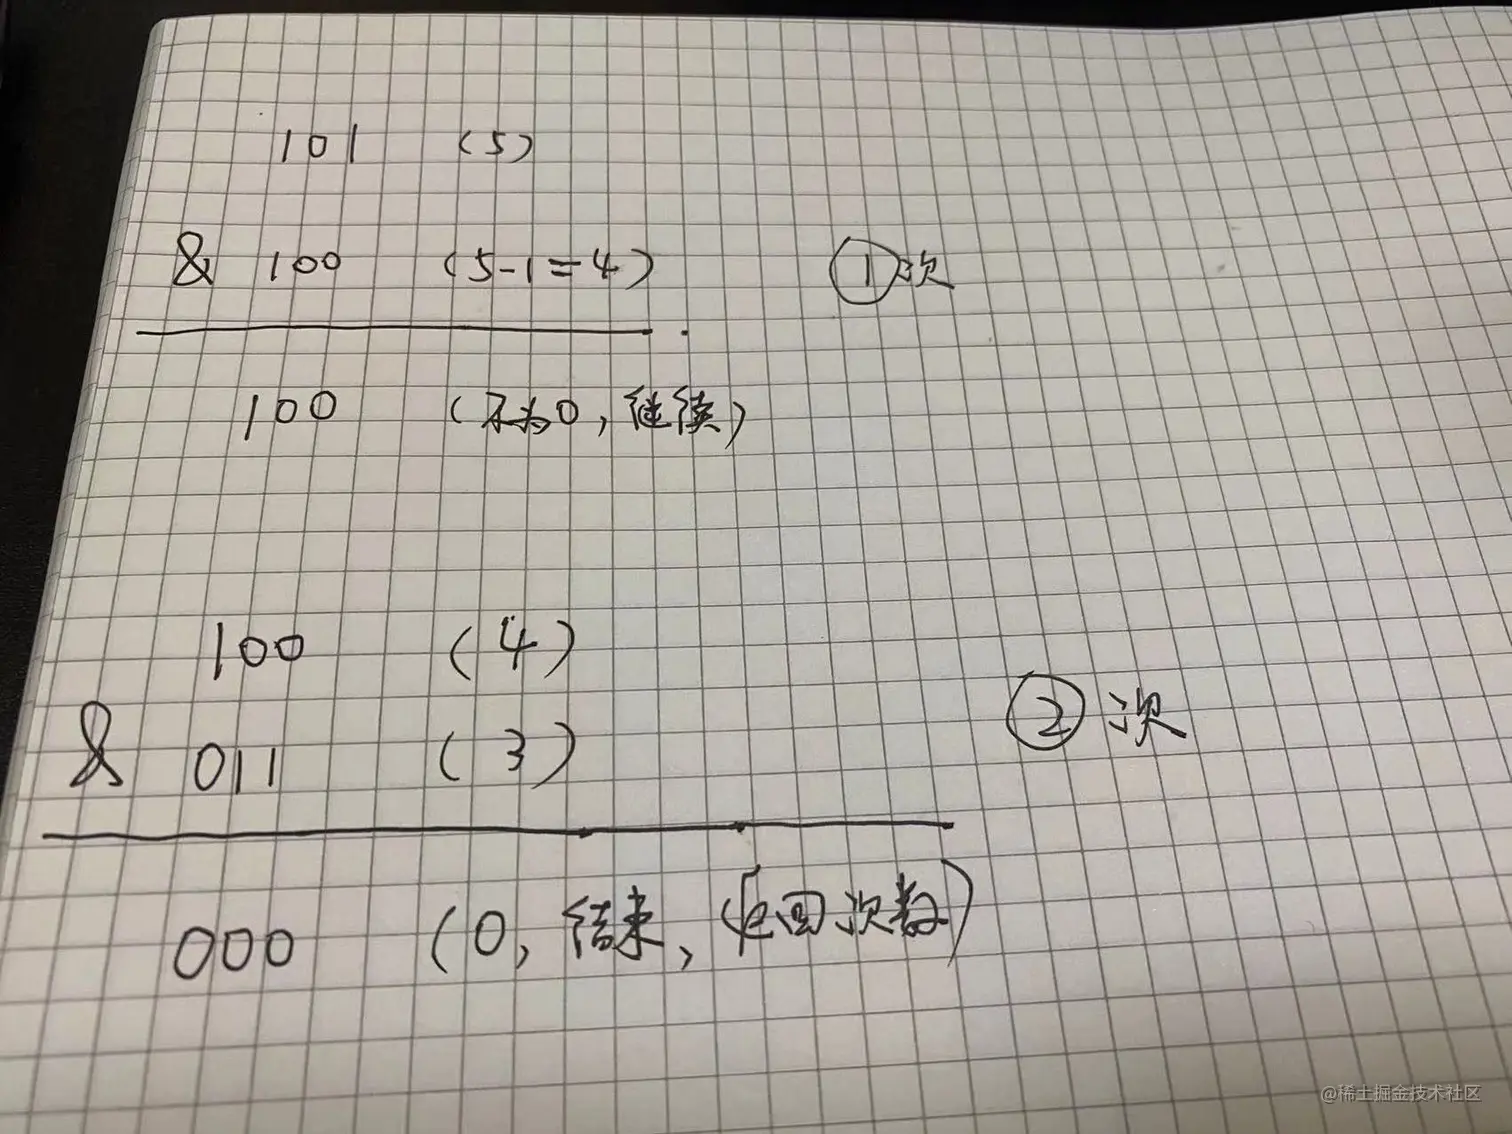 101 (5)
& 100 (5-1=4) ①次
100 (不为0,继续)
100 (4)
& 011 (3) ②次
000 (0,结束,返回次数)
@稀土掘金技术社区